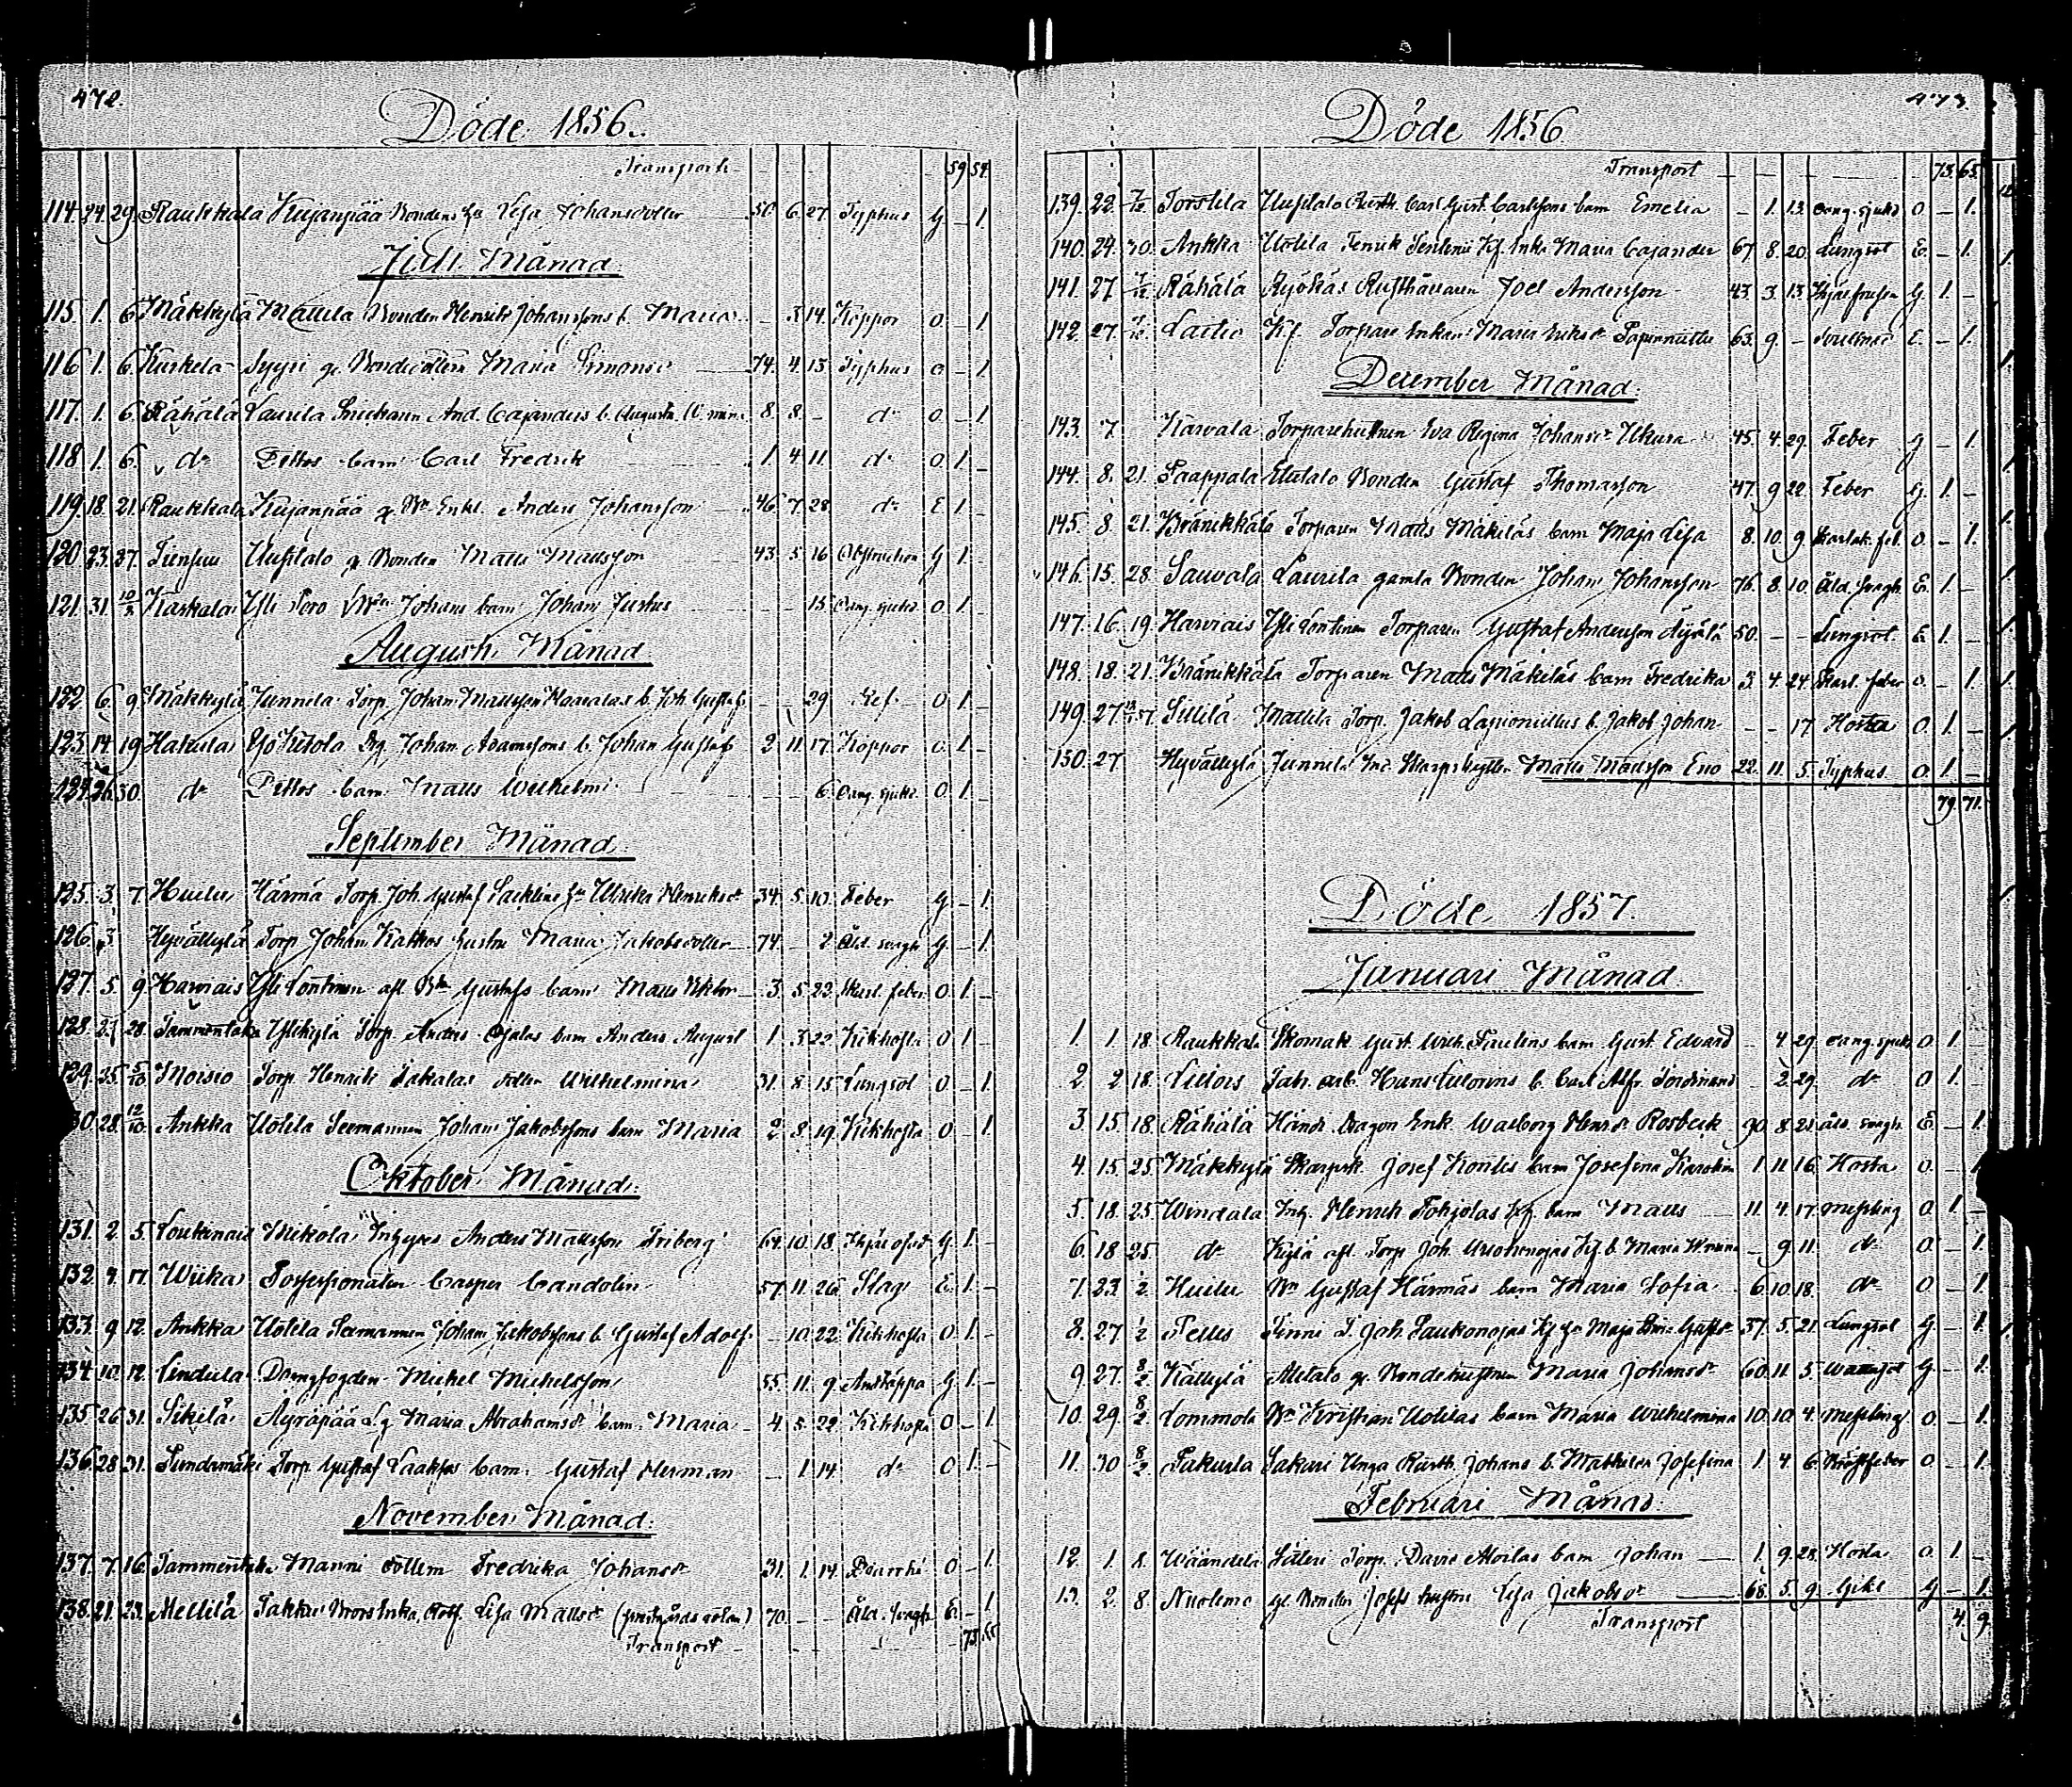 472.
Döde 1856.
Transport 59 54.
114. 24. 29. Raukkala Kujanpää Bondens hu Lisa Johansdotter 50. 6. 27 Typhus G - 1.
Juli Månad
115. 1. 6. Mäkkylä Mattila Bonden Henrik Johanssons b. Maria - 3. 14. Koppor O - 1
116. 1. 6. Kuskela Syyri gl. Maria Simonsd 74. 4. 13 Typhus - 1.
117. 1. 6. Rähälä Laurila And. Cajanders b. Augusta 8. 8. - do O. - 1
118 1. 6. do Dittos barn Carl Fredrik 1. 4. 11. do O. 1. -
119. 18. 21. Raukkala Kujanpää g. Bde Enkl. Anders Johansson 46. 7. 28 do E 1. -
120 23. 27. Junsuu Uusitalo g. Bonden Matts Mattsson 43. 5. 16 Obstruction G 1. -
121. 31. 10/8 Kaskala Yli Poro Johans barn Johan Justus - - 15 Oang. sjukd. O. 1. -
Augusti Månad.
122 6. 9 Mäkkylä Junnila Torp. Johan Mattsson b. Joh. Gustaf - - 29 O. 1 -
123. 14. 19 Hakula Yso Kitola Drg. Johan Adamssons b. Johan Gustaf 2 11. 17. Koppor O. 1. -
124. 26. 30. do Dittos barn Matts Wilhelm - - 6. Oang. sjukd. O. 1. -
September Månad.
125. 3. 7. Huilu Härmä Torp. Joh. Gustaf hu Ulrika Henriksdr 34. 5. 10. Feber G - 1.
126. 3. Hyvälkylä Torp. Johan Kattkos hustru Maria Jakobsdotter 74. - 2 Åld. svagh G - 1.
127. 5 9 Harviais Yli Lontinen afl. Bde Gustafs barn Matts Viktor 3. 5. 22. Skarl. feber O. 1. -
128. 27 28. Tammentaka Ylikylä Torp. Anders Ojalas barn Anders August 1. 3. 22 Kikhosta O 1 -
129. 25. 5/10 Moisio Torp. Henrik Jakalas dotter Wilhelmina 31. 8. 15 Lungsot O - 1.
130. 28. 12/10 Ankka Uotila Seemannen Johan Jakobssons barn Maria 2. 8. 19. Kikhosta O 1.
Oktober Månad.
131. 2. 5. Loukinais Mikola Inhyses Anders Mattsson Friberg 64. 10. 18. G 1. -
132. 4. 11. Wiikas Possessionaten Casper Candolin 57. 11. 26 Slag E. 1. -
133. 9 12. Ankka Uotila Seemannen Johan Jakobssons b. Gustaf Adolf - 10. 22. Kikhosta O 1. -
134. 10. 12. Lindula Michel Michelsson 55. 11. 9. Andtäppa G 1. -
135. 26 31. Sikilä Äyräpää Maria Abrahamsdr barn Maria 4. 5. 22. Kikhosta O - 1.
136. 28. 31. Torp. Gustaf Laaksos barn Gustaf Herman - 1. 14. do O 1. -
November Månad.
137. 7. 16. Tammentaka Manni dottern Fredrika Johansdr 31. 1. 14. Diarrhé O - 1.
138. 21. 23. Mellilä Takku Lisa Mattsdr 70. - - Åld. svagh E - 1
Transport 73. 65
473.
Döde 1856
Transport 73. 65.
139. 22. 7/12 Torttila Uusitalo Rusth. Carl Gust. Carlssons barn Emelia - 1. 13. oang. sjukd O - 1.
140. 24. 30. Ankka Uotila Enka Maria Cajander 67. 8. 20. Lungsot E. - 1.
141. 27 7/12 Rähälä Ryökäs Rusthållaren Joel Andersson 43. 3. 13. G. 1. -
142. 27. 7/12 Laitio Torpare Enkan Maria Eriksdr 63. 9 - E. - 1.
December Månad.
143. 7. Karvala Torparehustrun Eva Regina Johansdr 45. 4. 29. Feber G - 1.
144. 8. 21. Saappala Ylitalo Bonden Gustaf Thomasson 47. 9 22. Feber G. 1. -
145. 8. 21. Brännkkälä Torparen Matts Mäkiläs barn Maja Lisa 8. 10. 9 Skarlak. feb. O. - 1.
146. 15. 28. Sauvala Laurila gamla Bonden Johan Johansson 76. 8. 10. Åld. svagh. E. 1. -
147. 16. 19. Harviais Yli Lontinen Torparen Gustaf Andersson 50. - - Lungsot. G. 1. -
148. 18. 21. Brännkkälä Torparen Matts Mäkiläs barn Fredrika 3. 4. 24. Skarl. feber O. - 1.
149. 27 Sillilä Mattila Torp. Jakob b. Jakob Johan - - 17 Hosta O. 1. -
150. 27 Hyvälkylä Junnila Skarpskytten Matts Mattsson Eno 22. 11. 5. Typhus O. 1. -
79. 71.
Döde 1857.
Januari Månad.
1. 1. 18 Raukkala Skomak. Gust. Wilh. Paulins barn Gust. Edvard - 4 29 oang. sjukd O 1. -
2. 2. 18. Liitois Hans b. Carl Alfr. Ferdinand - 2. 29. do O 1. -
3 15. 18. Rähälä Dragon Enk. Walborg Henrsdr Rosbeck 90 8. 21. åld. svagh. E. - 1.
4. 15. 25. Mäkkylä Skarpsk. Josef Kontis barn Josefina Karolin 1. 11. 16. Hosta O. - 1
5. 18. 25. Windala Inh. Henrik Pohjolas barn Matts 11. 4. 17. messling O. 1. -
6. 18 25. do Kylä afl. Torp. Joh. b. Maria - 9 11. do O. - 1.
7. 23. 1/2 Huilu Bde Gustaf Härmäs barn Maria Sofia 6. 10. 18. do O - 1.
8. 27 1/2 Tellus Joh. Laukonojas Maja Gustdr 37. 5. 21. Lungsot G. - 1.
9. 27. 8/2 Källkylä Alitalo gl. Bondehustrun Maria Johansdr 60. 11. 5. G - 1.
10. 29 8/2 Lommola Bde Kristian Uotilas barn Maria Wilhelmina 10. 10. 4. messling O. - 1.
11. 30 8/2 Pakurla Sakari Unga Rusth. Johans b. Mathilda Josefina 1. 4 6 O - 1.
Februari Månad.
12. 1. 8. Wäändelä Torp. David barn Johan 1. 9. 28. Hosta O. 1. -
13. 2. 8. Nuolemo gl. Bonden Josefs hustru Lisa Jakobsdr 68. 5. 9. Gikt G - 1
Transport 4. 9.